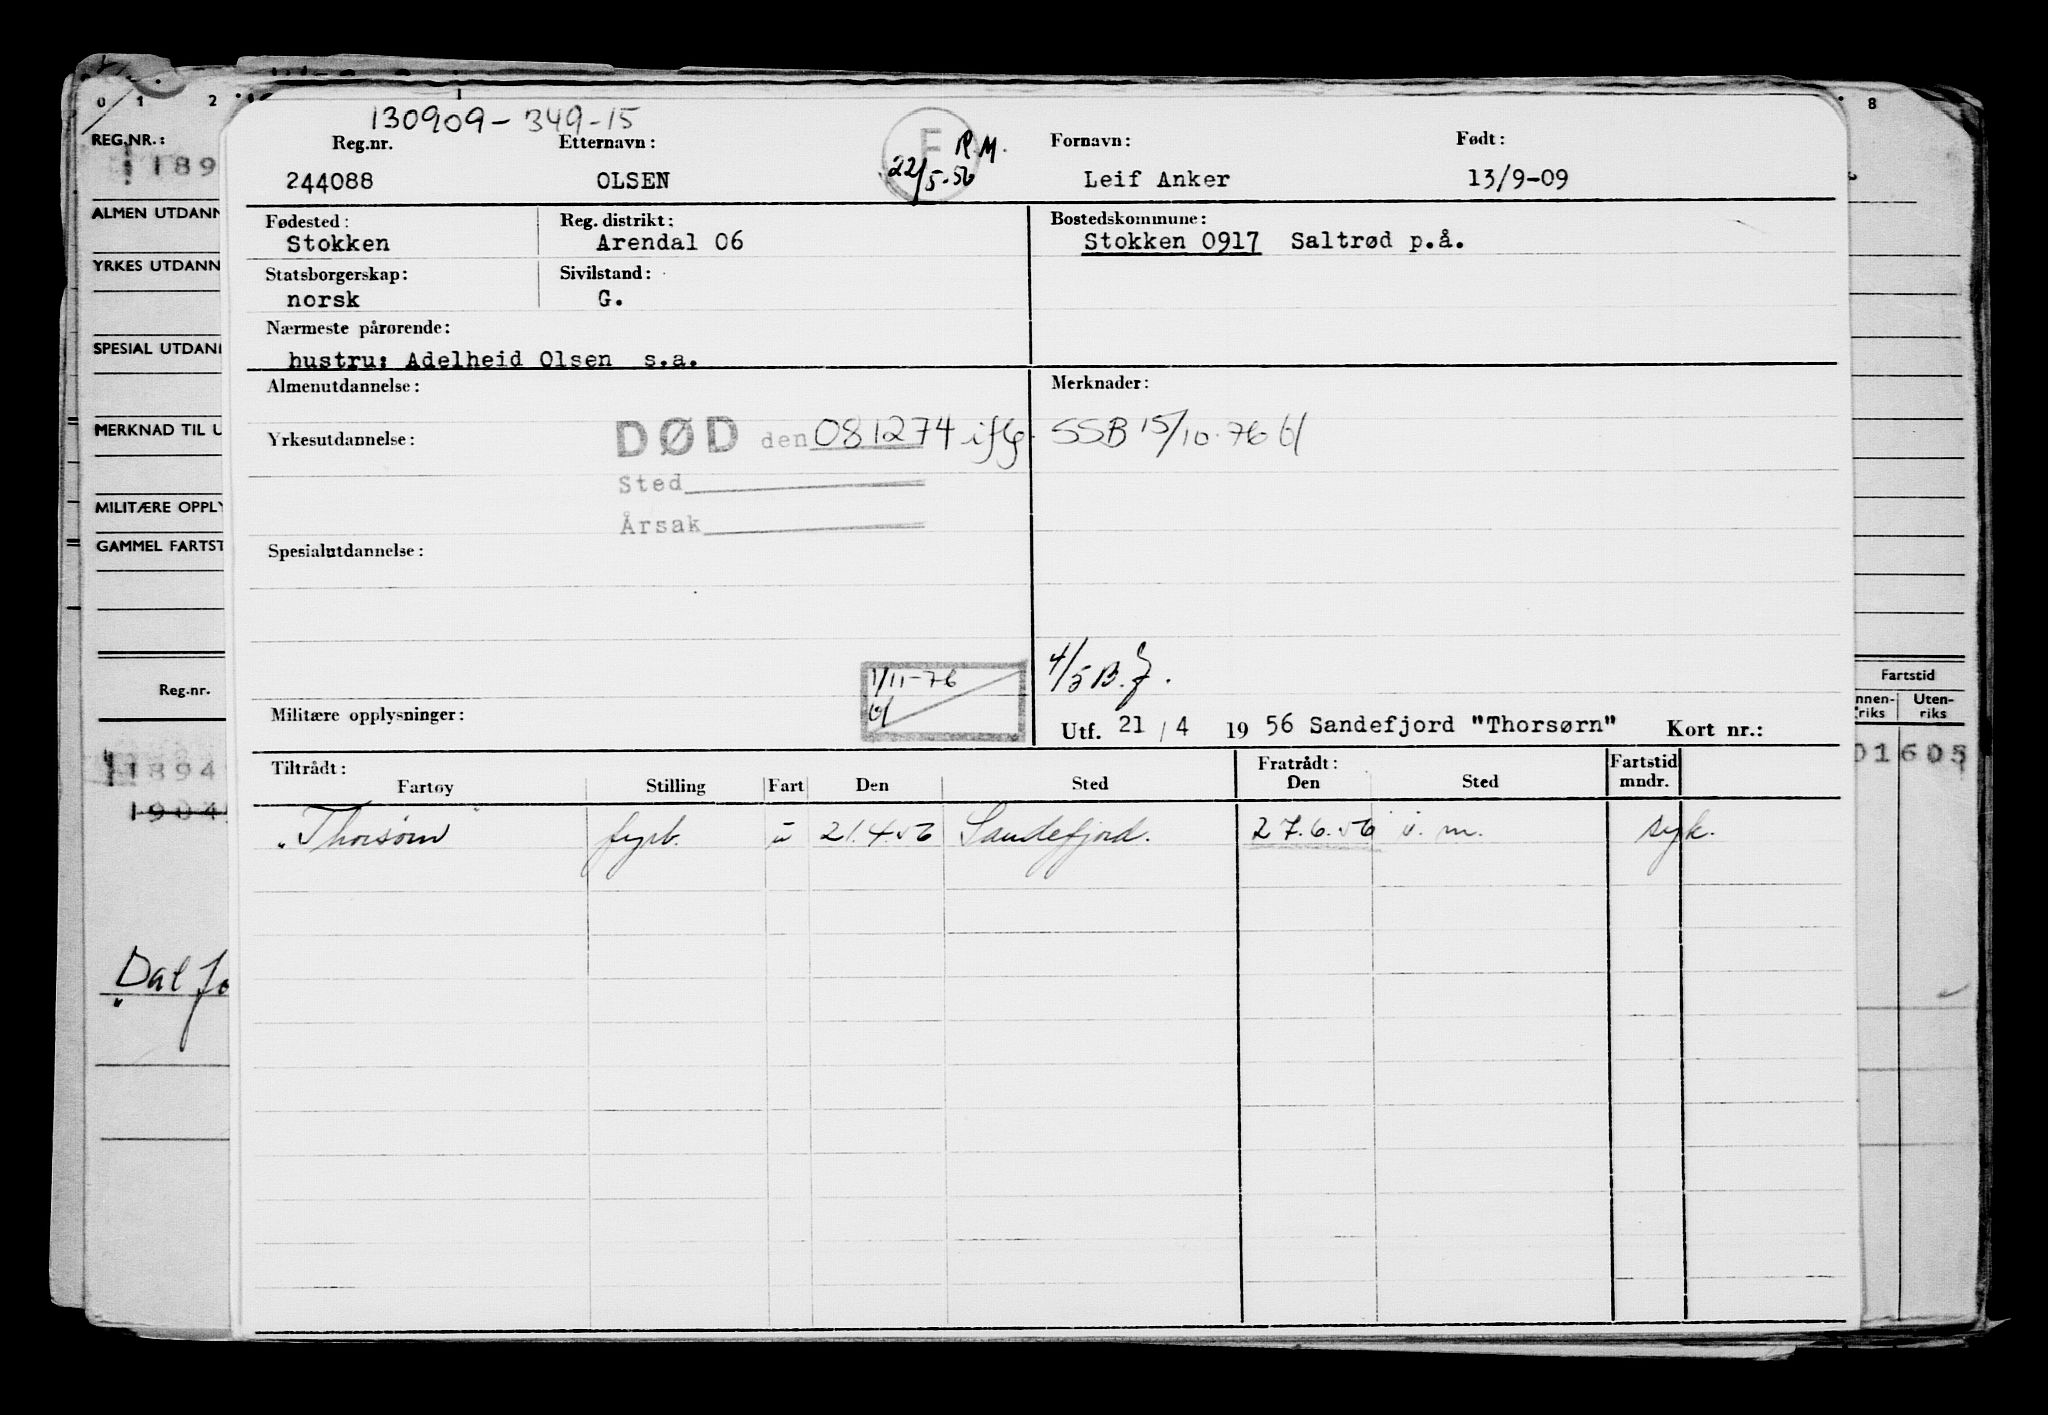 0 1 2 8
130909-34915
REG.NR.: Reg.nr. Etternavn: Fornavn: Født:
E R.M.
22/5-56
1189 244088 OLSEN Leif Anker 13/9-09
ALMEN UTDANN Fødested: Reg. distrikt: Bostedskommune:
Stokken Arendal 06 Stokken 0917 Saltrød p.å.
YRKES UTDANN Statsborgerskap: Sivilstand:
norsk G.
Nærmeste pårørende:
SPESIAL UTDAN hustru: Adelheid Olsen s.a.
Almenutdannelse: Merknader:
MERKNAD TIL U Yrkesutdannelse: DØD den 081274 iflg. SSB 15/10-76
Sted
MILITÆRE OPPLY Årsak
GAMMEL FARTST Spesialutdannelse:
1/11-76 4/5 B.J.
Reg.nr. Fartstid
Militære opplysninger: Utf. 21/4 1956 Sandefjord "Thorsørn" Kort nr.:
nnen-riks Uten-riks
Tiltrådt: Fratrådt: Fartstid
Fartøy Stilling Fart Den Sted Den Sted mndr.
1894 01605
"Thorsørn" fyrb. u 21.4.56 Sandefjord. 27.6.56 u.m. syk.
1904
"Dal fo